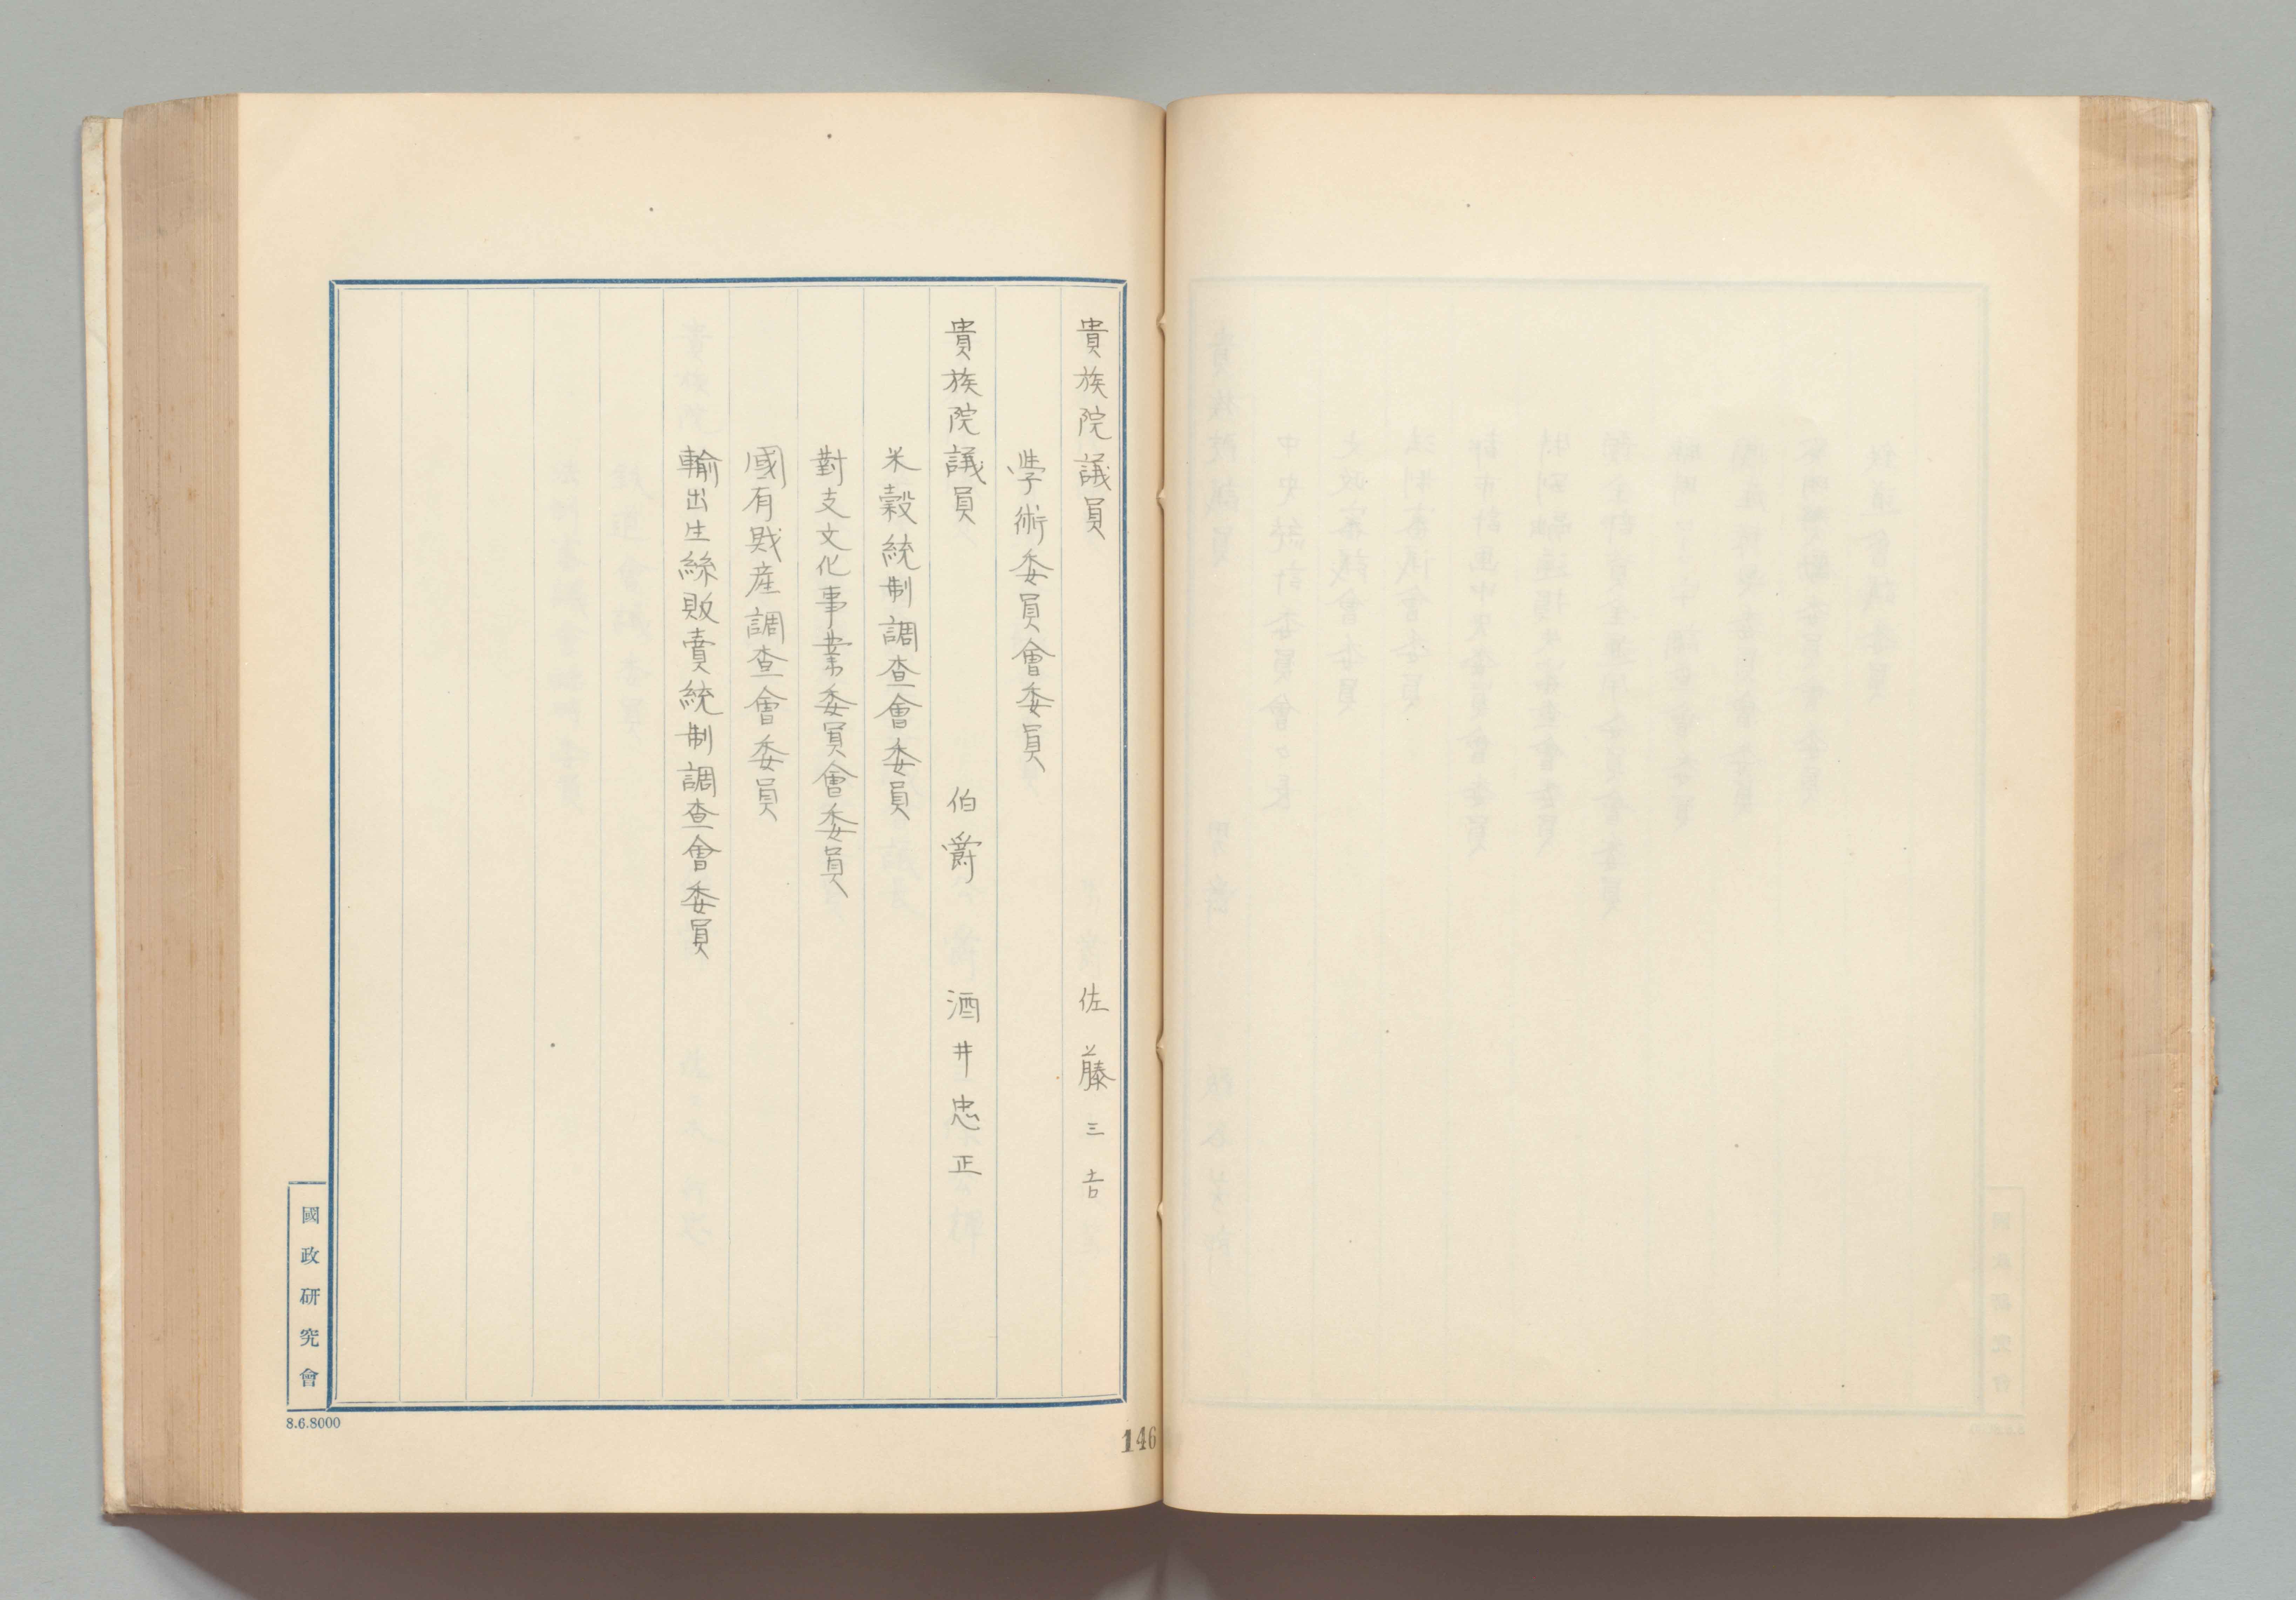 貴族院議員 佐藤三吉
學術委員會委員
貴族院議員 伯爵 酒井忠正
米穀統制調査會委員
對支文化事業委員會委員
國有財産調査會委員
輸出生絲販賣統制調査會委員
國政研究會
8.6.8000
146